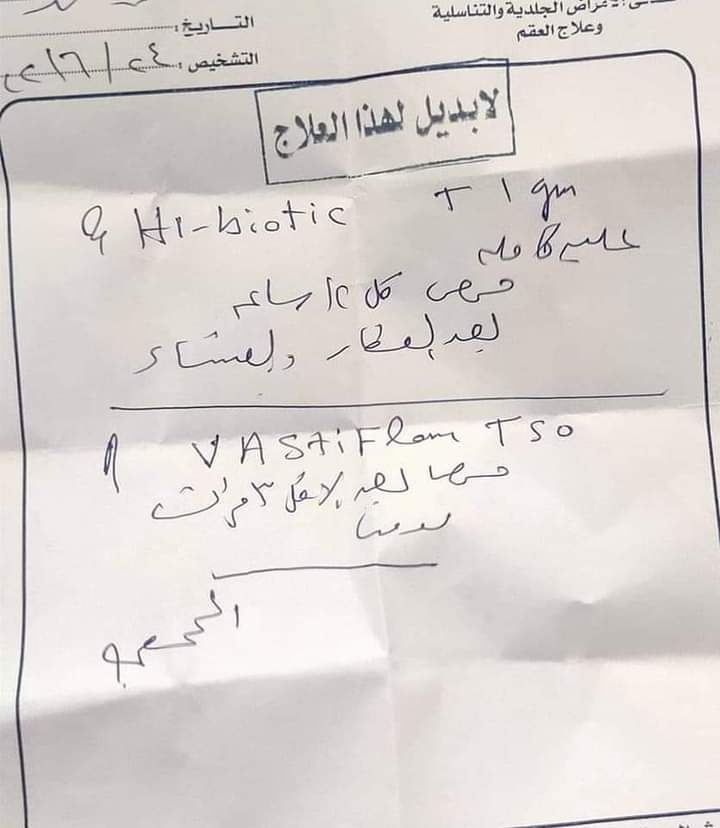 الجلدية والتناسلية
وعلاج العقم
التــاريخ:
التشخيص:
٢٤/٦/
لا بديل لهذا العلاج
Hi-biotic T 1 gm
علبه كامله
قرص كل ١٢ ساعه
بعد الفطار والعشاء
VAStiFlam T 50
قرص بعد الاكل ٣ مرات
يوميا